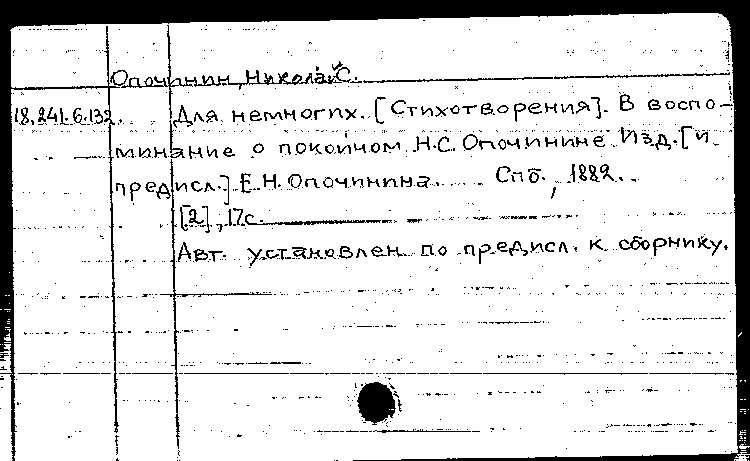 Опочинин, Николай С.
18.241.6.132. Для немногих. [Стихотворения]. В воспо-
минание о покойном Н.С. Опочинине. Изд. [и
предисл.] Е.Н. Опочинина. Спб., 1882.
[2], 17с.
Авт. установлен по предисл. к сборнику.